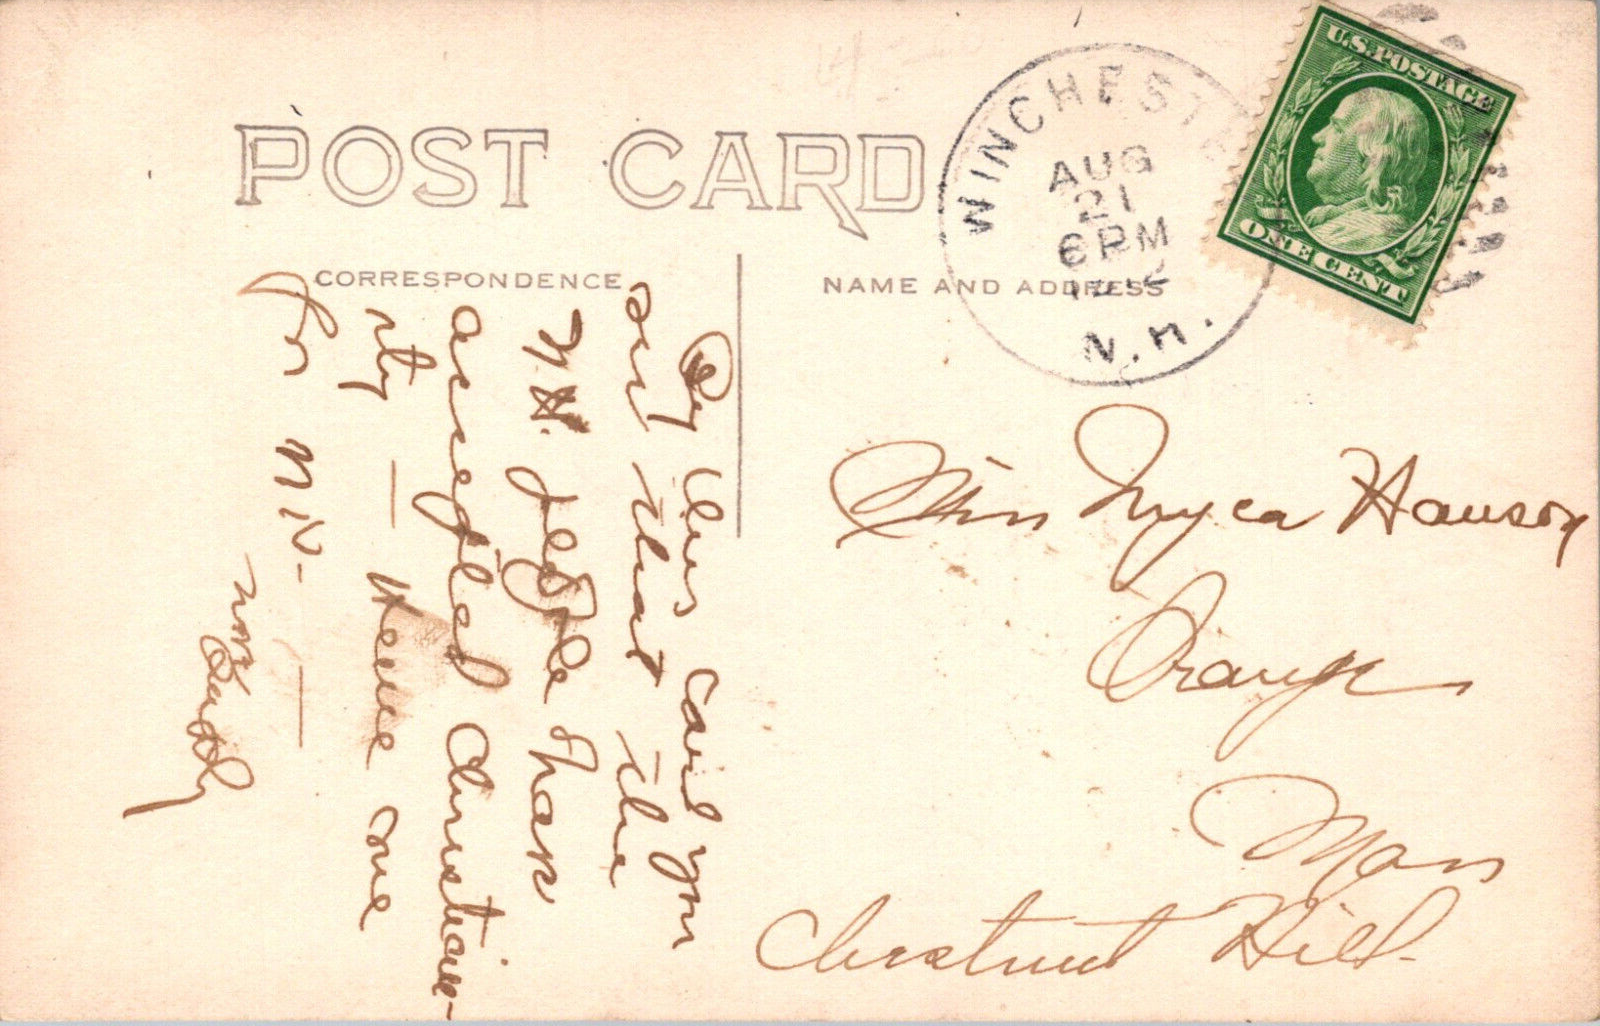 POST CARD
CORRESPONDENCE
NAME AND ADDRESS
WINCHESTE
AUG
21
6 PM
N.H.
U.S. POSTAGE
ONE CENT
By this card you
see that the
N.H. people has
accepted Christian-
ity — Keene one
for N.H. —
Miss Inyca Hanson
Orange
Mass
Chestnut Hill.